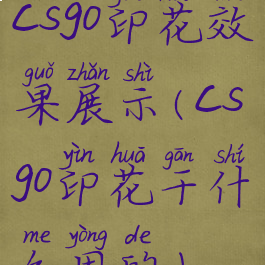 csgo印花效
guǒ zhǎn shì
果展示(cs
yìn huā gān shí
go印花干什
me yòng de
么用的)